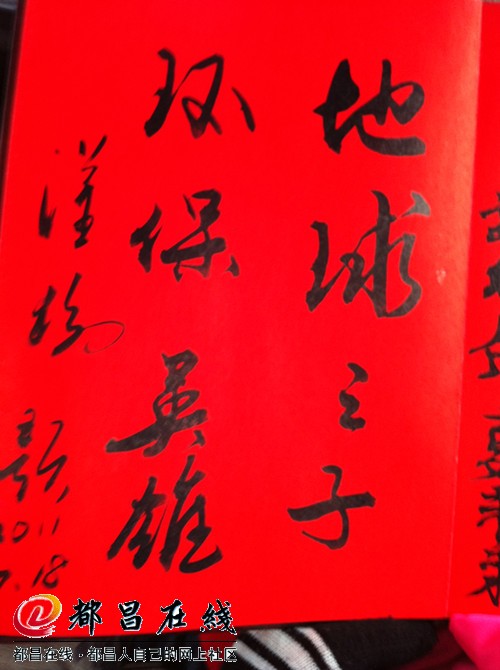 地球之子
环保英雄
题
2011
7.18
都昌在線
都昌在线·都昌人自己的网上社区